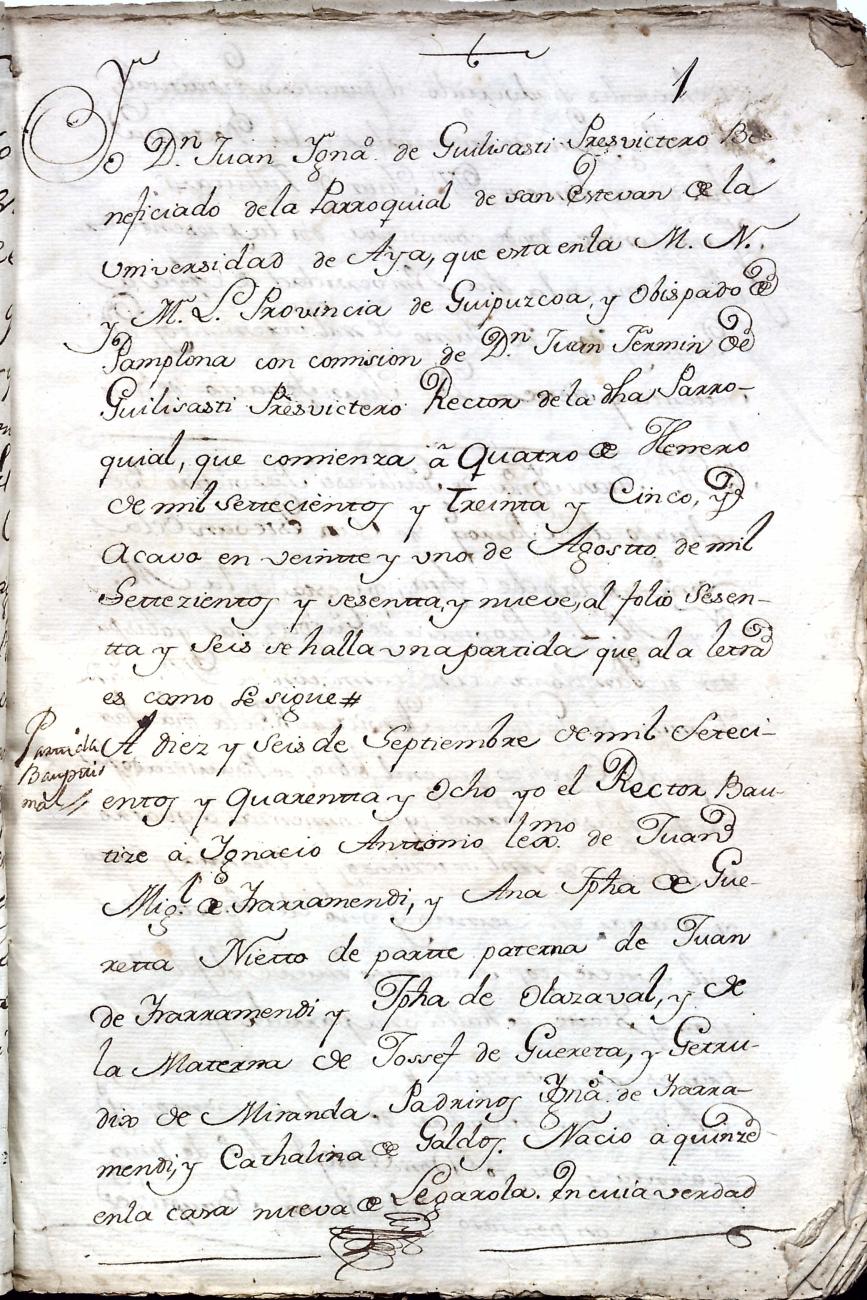 1
Yo Dn Juan Ygnao. de Guilisasti Presvictero Be-
neficiado dela Parroquial de san Estevan de la
Universidad de Aya, que esta enla M. N.
y M. L. Provincia de Guipuzcoa, y Obispado de
Pamplona con comision de Dn. Juan Fermin de
Guilisasti Presvictero Rector de la dha Parro-
quial, que comienza â Quatro de Henero
de mil settecientos y treinta y Cinco, y
acavo en veintte y uno de Agostto de mil
Settezientos y sesentta, y nueve, al folio Sesen-
tta y Seis se halla una partida que ala letra
es como se sigue #
Partida
Baptis
mal //
A diez y Seis de Septiembre de mil Seteci-
entos y quarentta y ocho yo el Rector Bau-
tize a Ygnacio Anttonio lexmo. de Juan
Migl. de Irarramendi, y Ana Jpha de Gue-
retta Nietto de partte paterna de Juan
de Irarramendi y Jpha de Olazaval, y de
la Materna de Jossef de Guereta, y Getru-
dix de Miranda. Padrinos Ygnao. de Irarra-
mendi, y Cathalina de Galdos. Nacio a quinze
enla casa nueva de Legarola. In cuia verdad